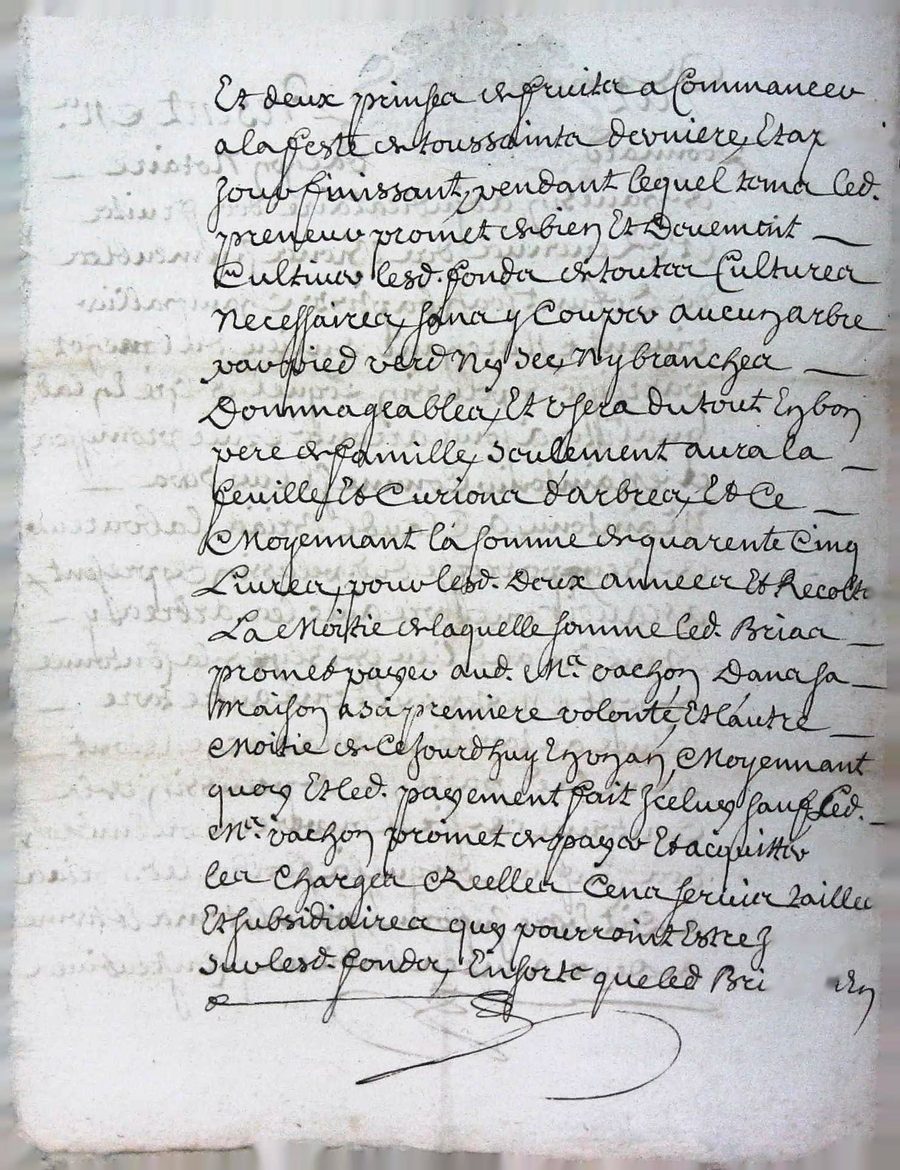 Et deux prinses de fruits a Commancer
a la feste de toussaints derniere, Et a p
Jour finissant, pendant lequel temps led.
preneur promet de bien Et Deuement
Cultiver lesd. fonds de toutes Cultures
Necessaires, sans y Couper aucun arbre
par pied verd Ny sec, Ny branches
Dommageables, Et usera du tout En bon
pere de famille, seulement aura la
feuille Et Curions d'arbres, Et Ce
Moyennant la somme de quarente Cinq
Livres, pour lesd. Deux annees Et Recolte
La Moitie de laquelle somme led. Brias
promet payer aud. Mr. vachon Dans sa
maison a sa premiere volonté, Et l'autre
Moitie de Ce Jourdhuy En un an, Moyennant
quoy Et led. payement fait Jceluy sauf Led.
Mr. vachon promet de payer Et acquitter
les Charges Reelles Cens servis tailles
Et subsidiaires quy pourroint Estre
sur lesd. fonds, En sorte que led Bri en